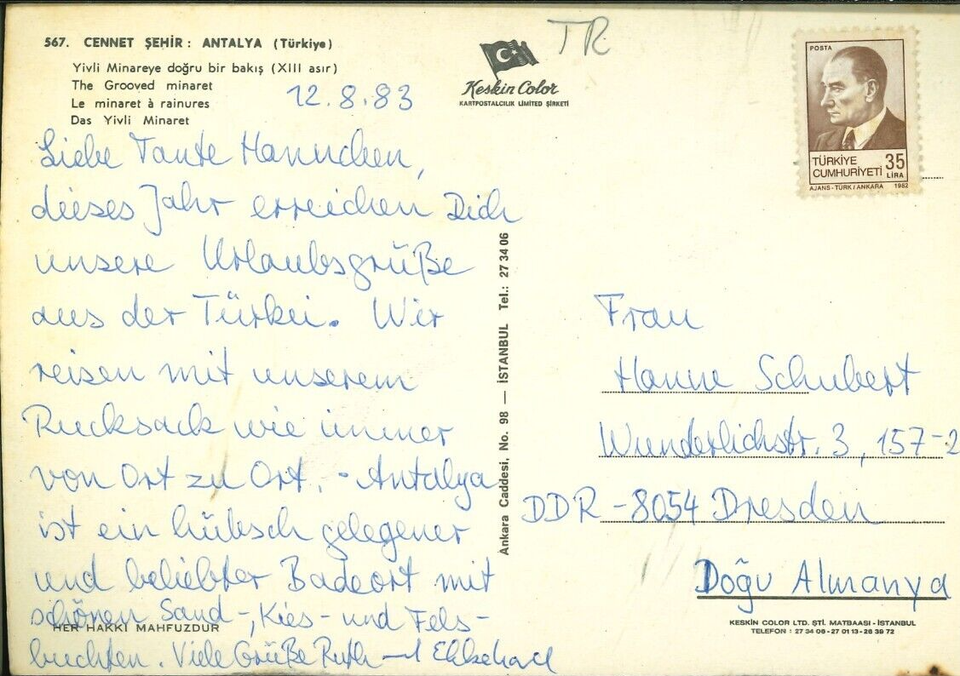 567. CENNET ŞEHİR: ANTALYA (Türkiye)
Yivli Minareye doğru bir bakış (XIII asır)
The Grooved minaret
Le minaret à rainures
Das Yivli Minaret
12.8.83
Liebe Tante Hannchen,
dieses Jahr erreichen Dich
unsere Urlaubsgrüße
aus der Türkei. Wir
reisen mit unserem
Rucksack wie immer
von Ort zu Ort. - Antalya
ist ein hübsch gelegener
und beliebter Badeort mit
schönen Sand-, Kies- und Fels-
buchten. Viele Grüße Ruth und Ekkehard
HER HAKKI MAHFUZDUR
TR
Keskin Color
KARTPOSTALCILIK LİMİTED ŞİRKETİ
Ankara Caddesi, No. 98 — İSTANBUL Tel.: 27 34 06
POSTA
TÜRKİYE
CUMHURİYETİ 35
LİRA
AJANS-TÜRK/ANKARA 1982
Frau
Hanne Schubert
Wunderlichstr. 3, 157-2
DDR-8054 Dresden
Doğu Almanya
KESKIN COLOR LTD. ŞTİ. MATBAASI-İSTANBUL
TELEFON : 27 34 06-27 01 13-26 39 72